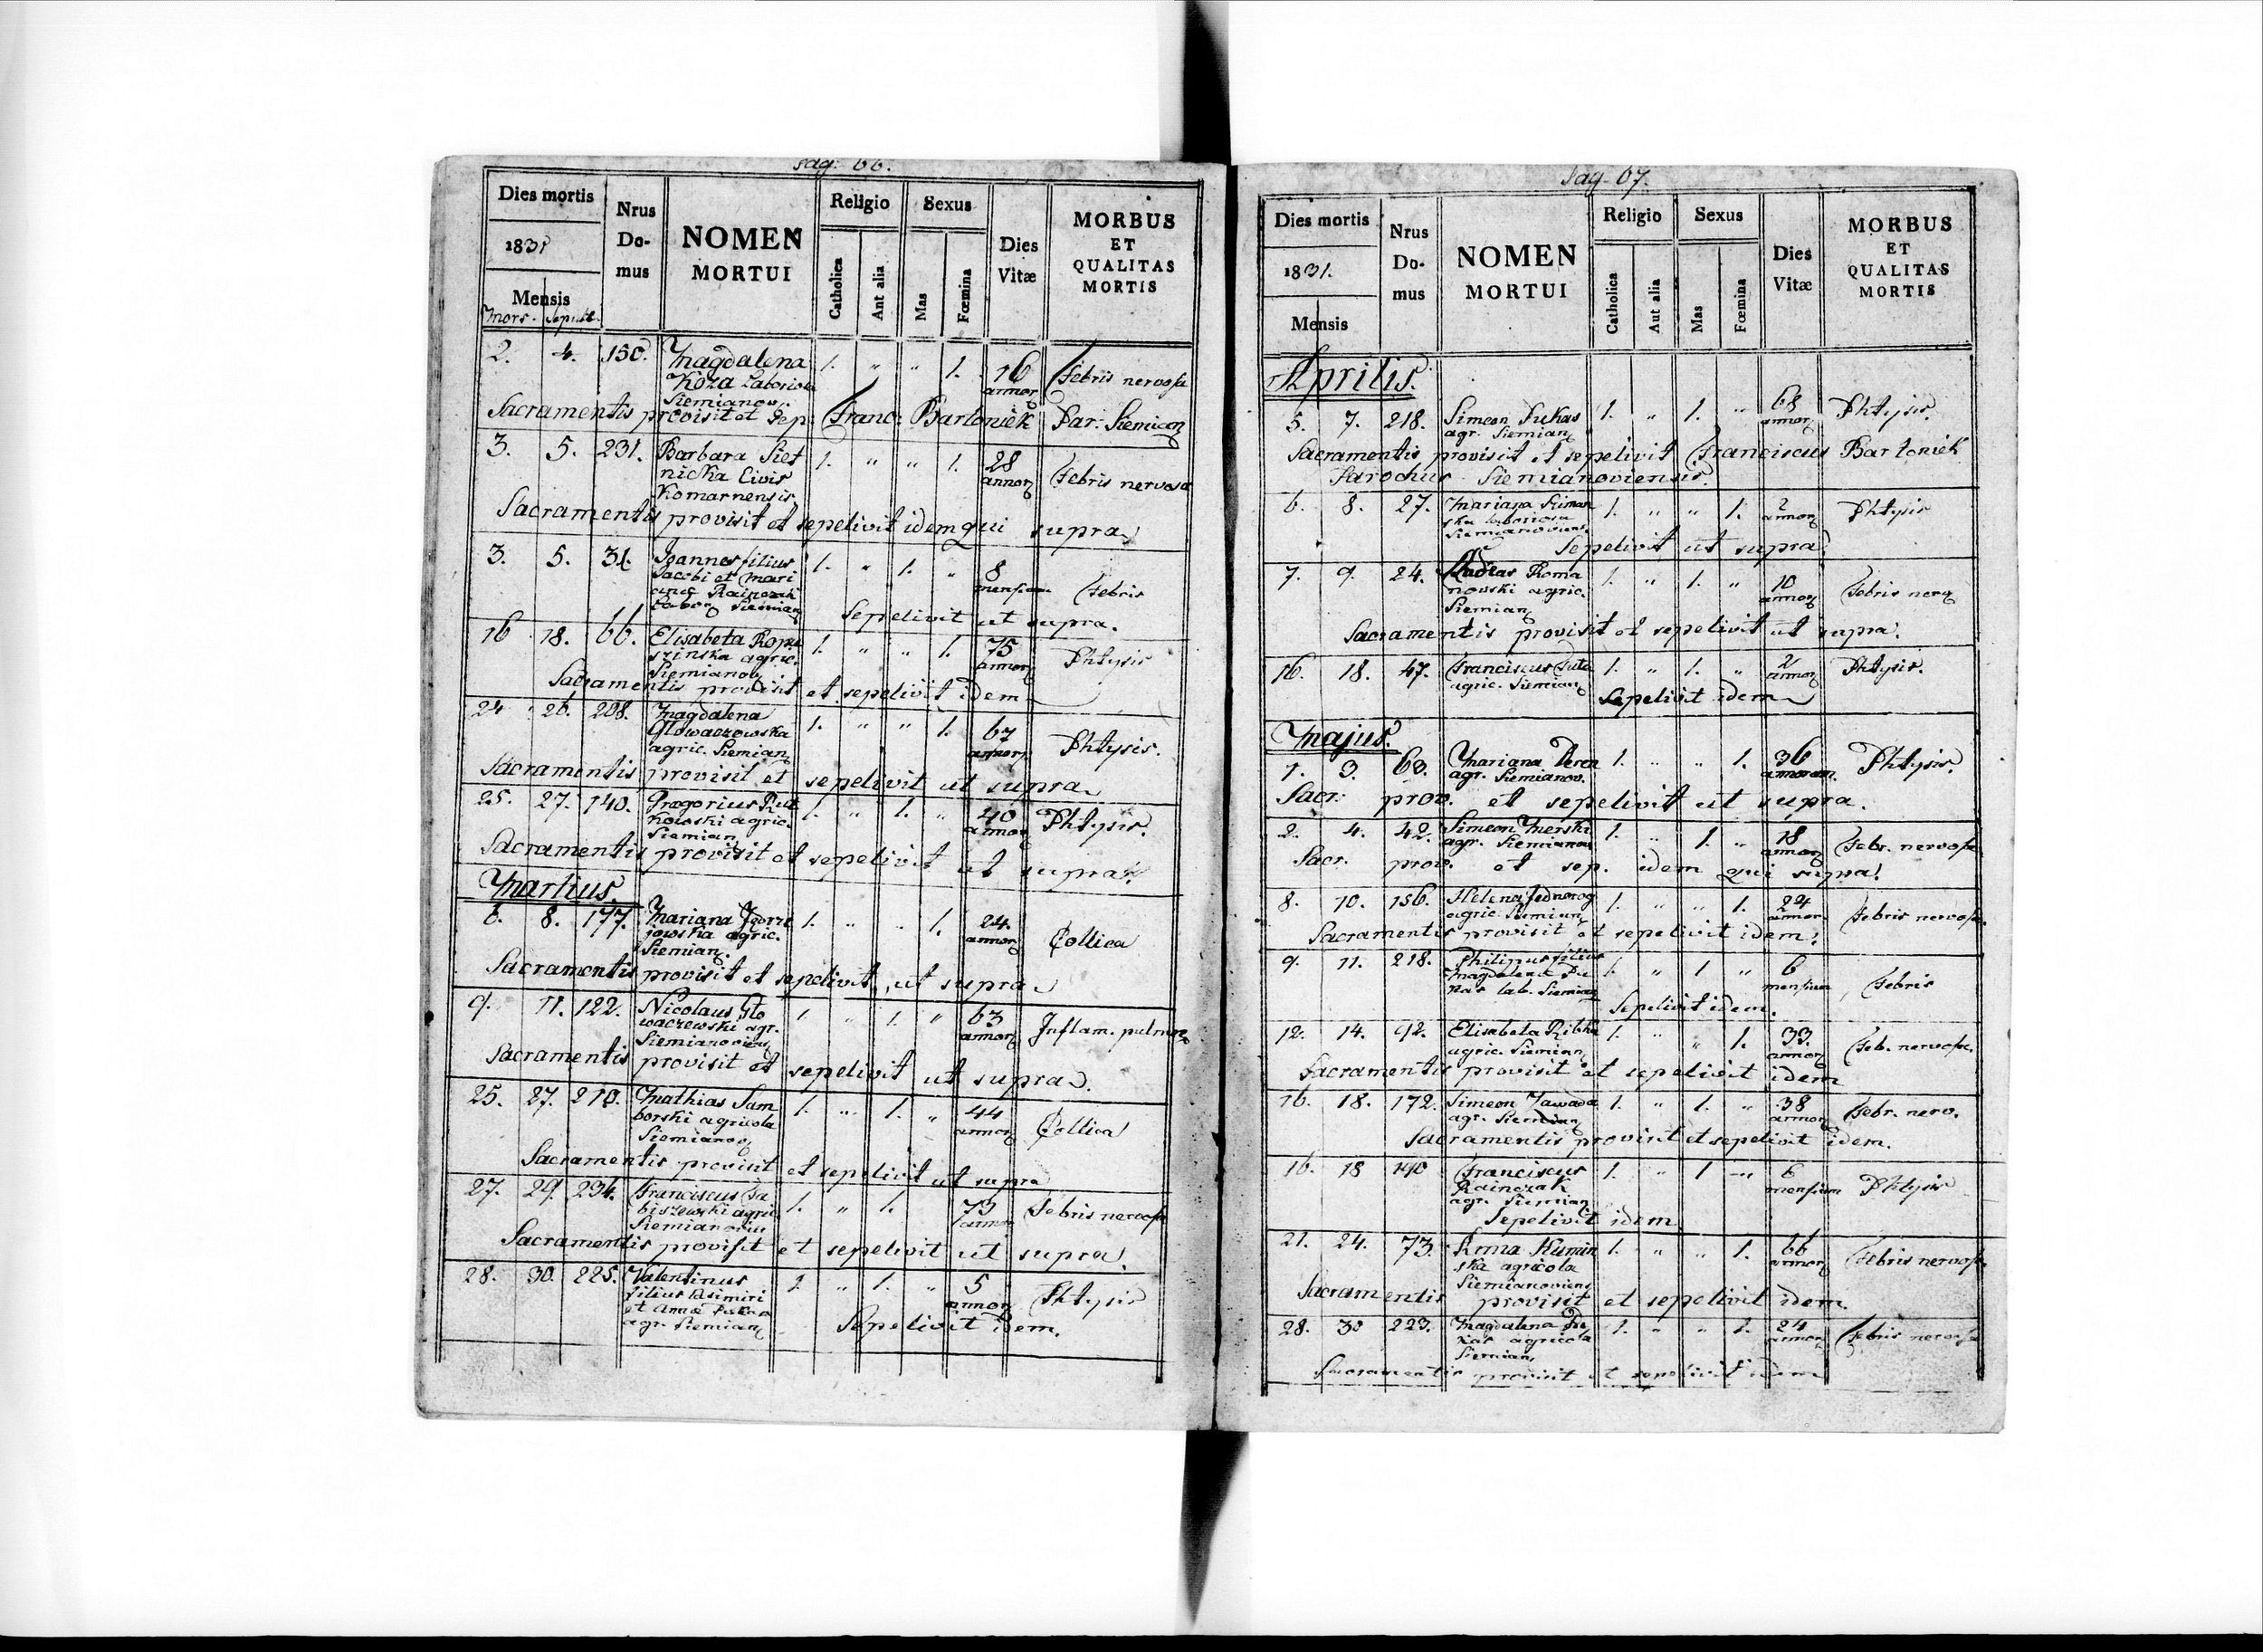 pag. 66.
Dies mortis
1831
Mensis
Mors. Sepult.
Nrus
Do-
mus
NOMEN
MORTUI
Religio
Catholica
Aut alia
Sexus
Mas
Fœmina
Dies
Vitæ
MORBUS
ET
QUALITAS
MORTIS
2. 4. 150. Magdalena 1. " " 1. 16 Febris nervosa
Koza Laboriosa annor
Siemianov.
Sacramentis provisit et Sep: Franc: Bartoniek Par: Siemian
3. 5. 231. Barbara Siet 1. " " 1. 28 Febris nervosa
nicka Civis annor
Komarnensis
Sacramentis provisit et sepelivit idem qui supra
3. 5. 31. Joannes filius 1. " 1. " 8 Febris
Jacobi et Mari mensium
anæ Rainczak
Labor Siemian
Sepelivit ut supra.
16 18. 66. Elisabeta Ropu 1. " " 1. 75 Phtysis
szinska agric. annor
Siemianov
Sacramentis provisit et sepelivit idem
24 26. 208. Magdalena 1. " " 1. 67 Phtysis.
Glowaczowska annor
agric. Siemian
Sacramentis provisit et sepelivit ut supra
25. 27. 140. Gregorius Rut 1. " 1. " 40 Phtysis.
kowski agric. annor
Siemian
Sacramentis provisit et sepelivit ut supra.
Martius.
6. 8. 177. Mariana 1. " " 1. 24. Collica
jowska agric. annor
Siemian.
Sacramentis provisit et sepelivit, ut supra
9. 11. 122. Nicolaus Glo 1. " 1. " 63 Inflam. pulmon
waczewski agr. annor
Siemianoviens
Sacramentis provisit et sepelivit ut supra.
25. 27. 210. Mathias Sam 1. " 1. " 44 Collica
borski agricola annor
Siemianov
Sacramentis provisit et sepelivit ut supra
27. 29. 234. Franciscus Fa 1. " 1. 73 Febris nervosa
biszewski agric. annor
Siemianovien
Sacramentis provisit et sepelivit ut supra.
28. 30. 225. Valentinus 1. " 1. " 5 Phtysis
filius Casimiri annor
et Annæ
agr. Siemian
Sepelivit idem.
pag. 67.
Dies mortis
1831.
Mensis
Nrus
Do-
mus
NOMEN
MORTUI
Religio
Catholica
Aut alia
Sexus
Mas
Fœmina
Dies
Vitæ
MORBUS
ET
QUALITAS
MORTIS
Aprilis.
5. 7. 218. Simeon Pukas 1. " 1. " 68 Phtysis.
agr. Siemian annor
Sacramentis provisit et sepelivit Franciscus Bartoniek
Parochus Siemianoviensis.
6. 8. 27. Mariana Siman 1. " " 1. 2 Phtysis
ska laboriosa annor
Siemianoviens.
Sepelivit ut supra.
7. 9. 24. Roma 1. " 1. " 10 Febris nerv
nowski agric. annor
Siemian
Sacramentis provisit et sepelivit ut supra.
16. 18. 47. Franciscus Puta 1. " 1. " 2 Phtysis.
agric. Siemian annor
Sepelivit idem
Majus.
1. 3. 63. Mariana Deren 1. " " 1. 36 Phtysis.
agr. Siemianov. annorum
Sacr: prov. et sepelivit ut supra.
2. 4. 42. Simeon Merski 1. " 1. " 18 Febr. nervosa
agr. Siemianov annor
Sacr. prov. et sep. idem qui supra.
8. 10. 156. Helena Jednorog 1. " " 1. 24 Febris nervosa.
agric. Siemian annor.
Sacramentis provisit et sepelivit idem.
9. 11. 218. Philipus filius 1. " 1 " 6 Febris
Magdalenæ Pu mensium
kas lab. Siemian
Sepelivit idem.
12. 14. 92. Elisabeta Ribka 1. " " 1. 33. Feb. nervosa.
agric. Siemian annor
Sacramentis provisit et sepelivit idem
16. 18. 172. Simeon Zawada 1. " 1. " 38 Febr. nerv.
agr. Siemian annor
Sacramentis provisit et sepelivit idem.
16. 18 190 Franciscus 1. " 1 " 6 Phtysis
Rainczak mensium
agr. Siemian
Sepelivit idem
21. 24. 73. Anna Kumin 1. " " 1. 66 Febris nervosa.
ska agricola annor
Siemianoviens
Sacramentis provisit et sepelivit idem.
28. 30 223. Magdalena Pu 1. " " 1. 24 Febris nervosa
kas agricola annor
Siemian,
Sacramentis provisit et sepelivit idem